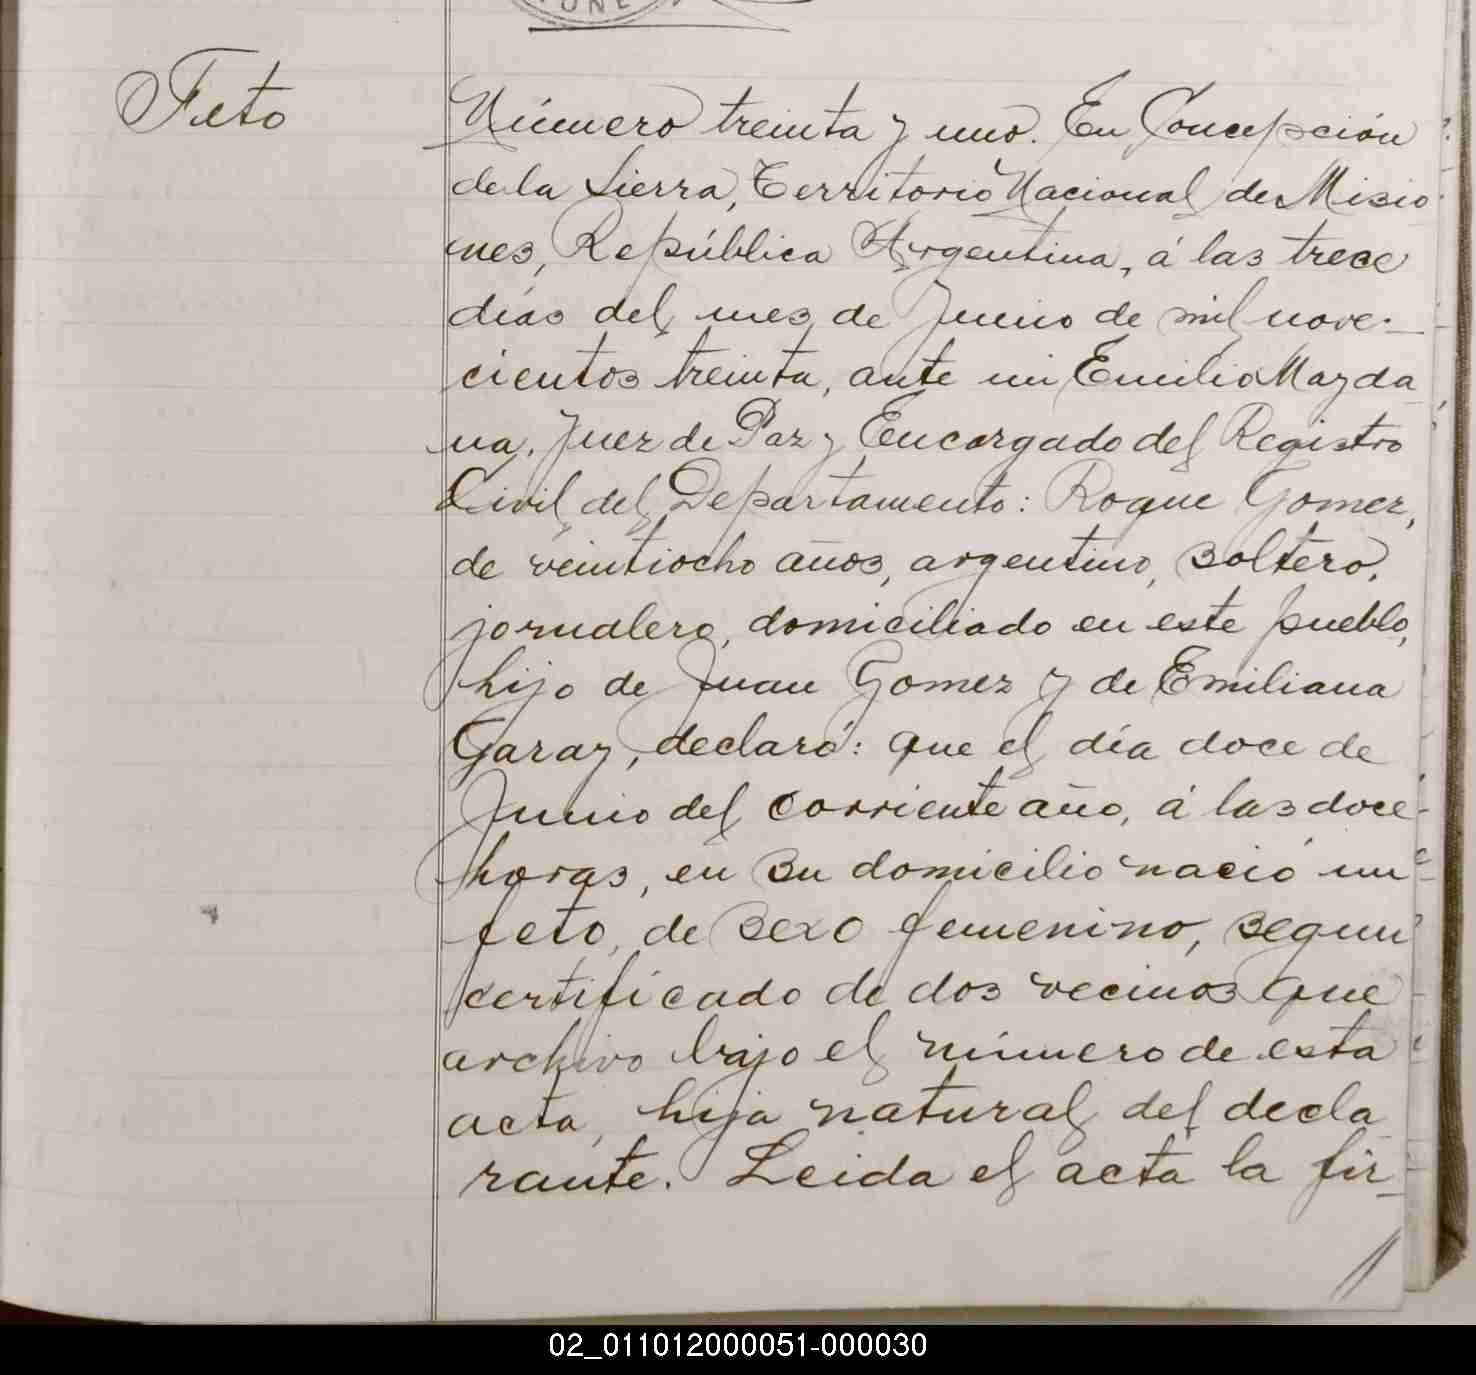 UNE
Feto
Número treinta y uno. En Concepción
de la Sierra, Territorio Nacional de Misio
nes, República Argentina, á las trece
días del mes de Junio de mil nove-
cientos treinta, ante mi Emilio Mayda
na, Juez de Paz y Encargado del Registro
Civil del Departamento: Roque Gomez,
de veintiocho años, argentino, soltero,
jornalero, domiciliado en este pueblo,
hijo de Juan Gomez y de Emiliana
Garay, declaró: que el día doce de
Junio del corriente año, á las doce
horas, en su domicilio nació un
feto, de sexo femenino, segun
certificado de dos vecinos que
archivo bajo el número de esta
acta, hija natural del decla
rante. Leida el acta la fir-
02_011012000051-000030